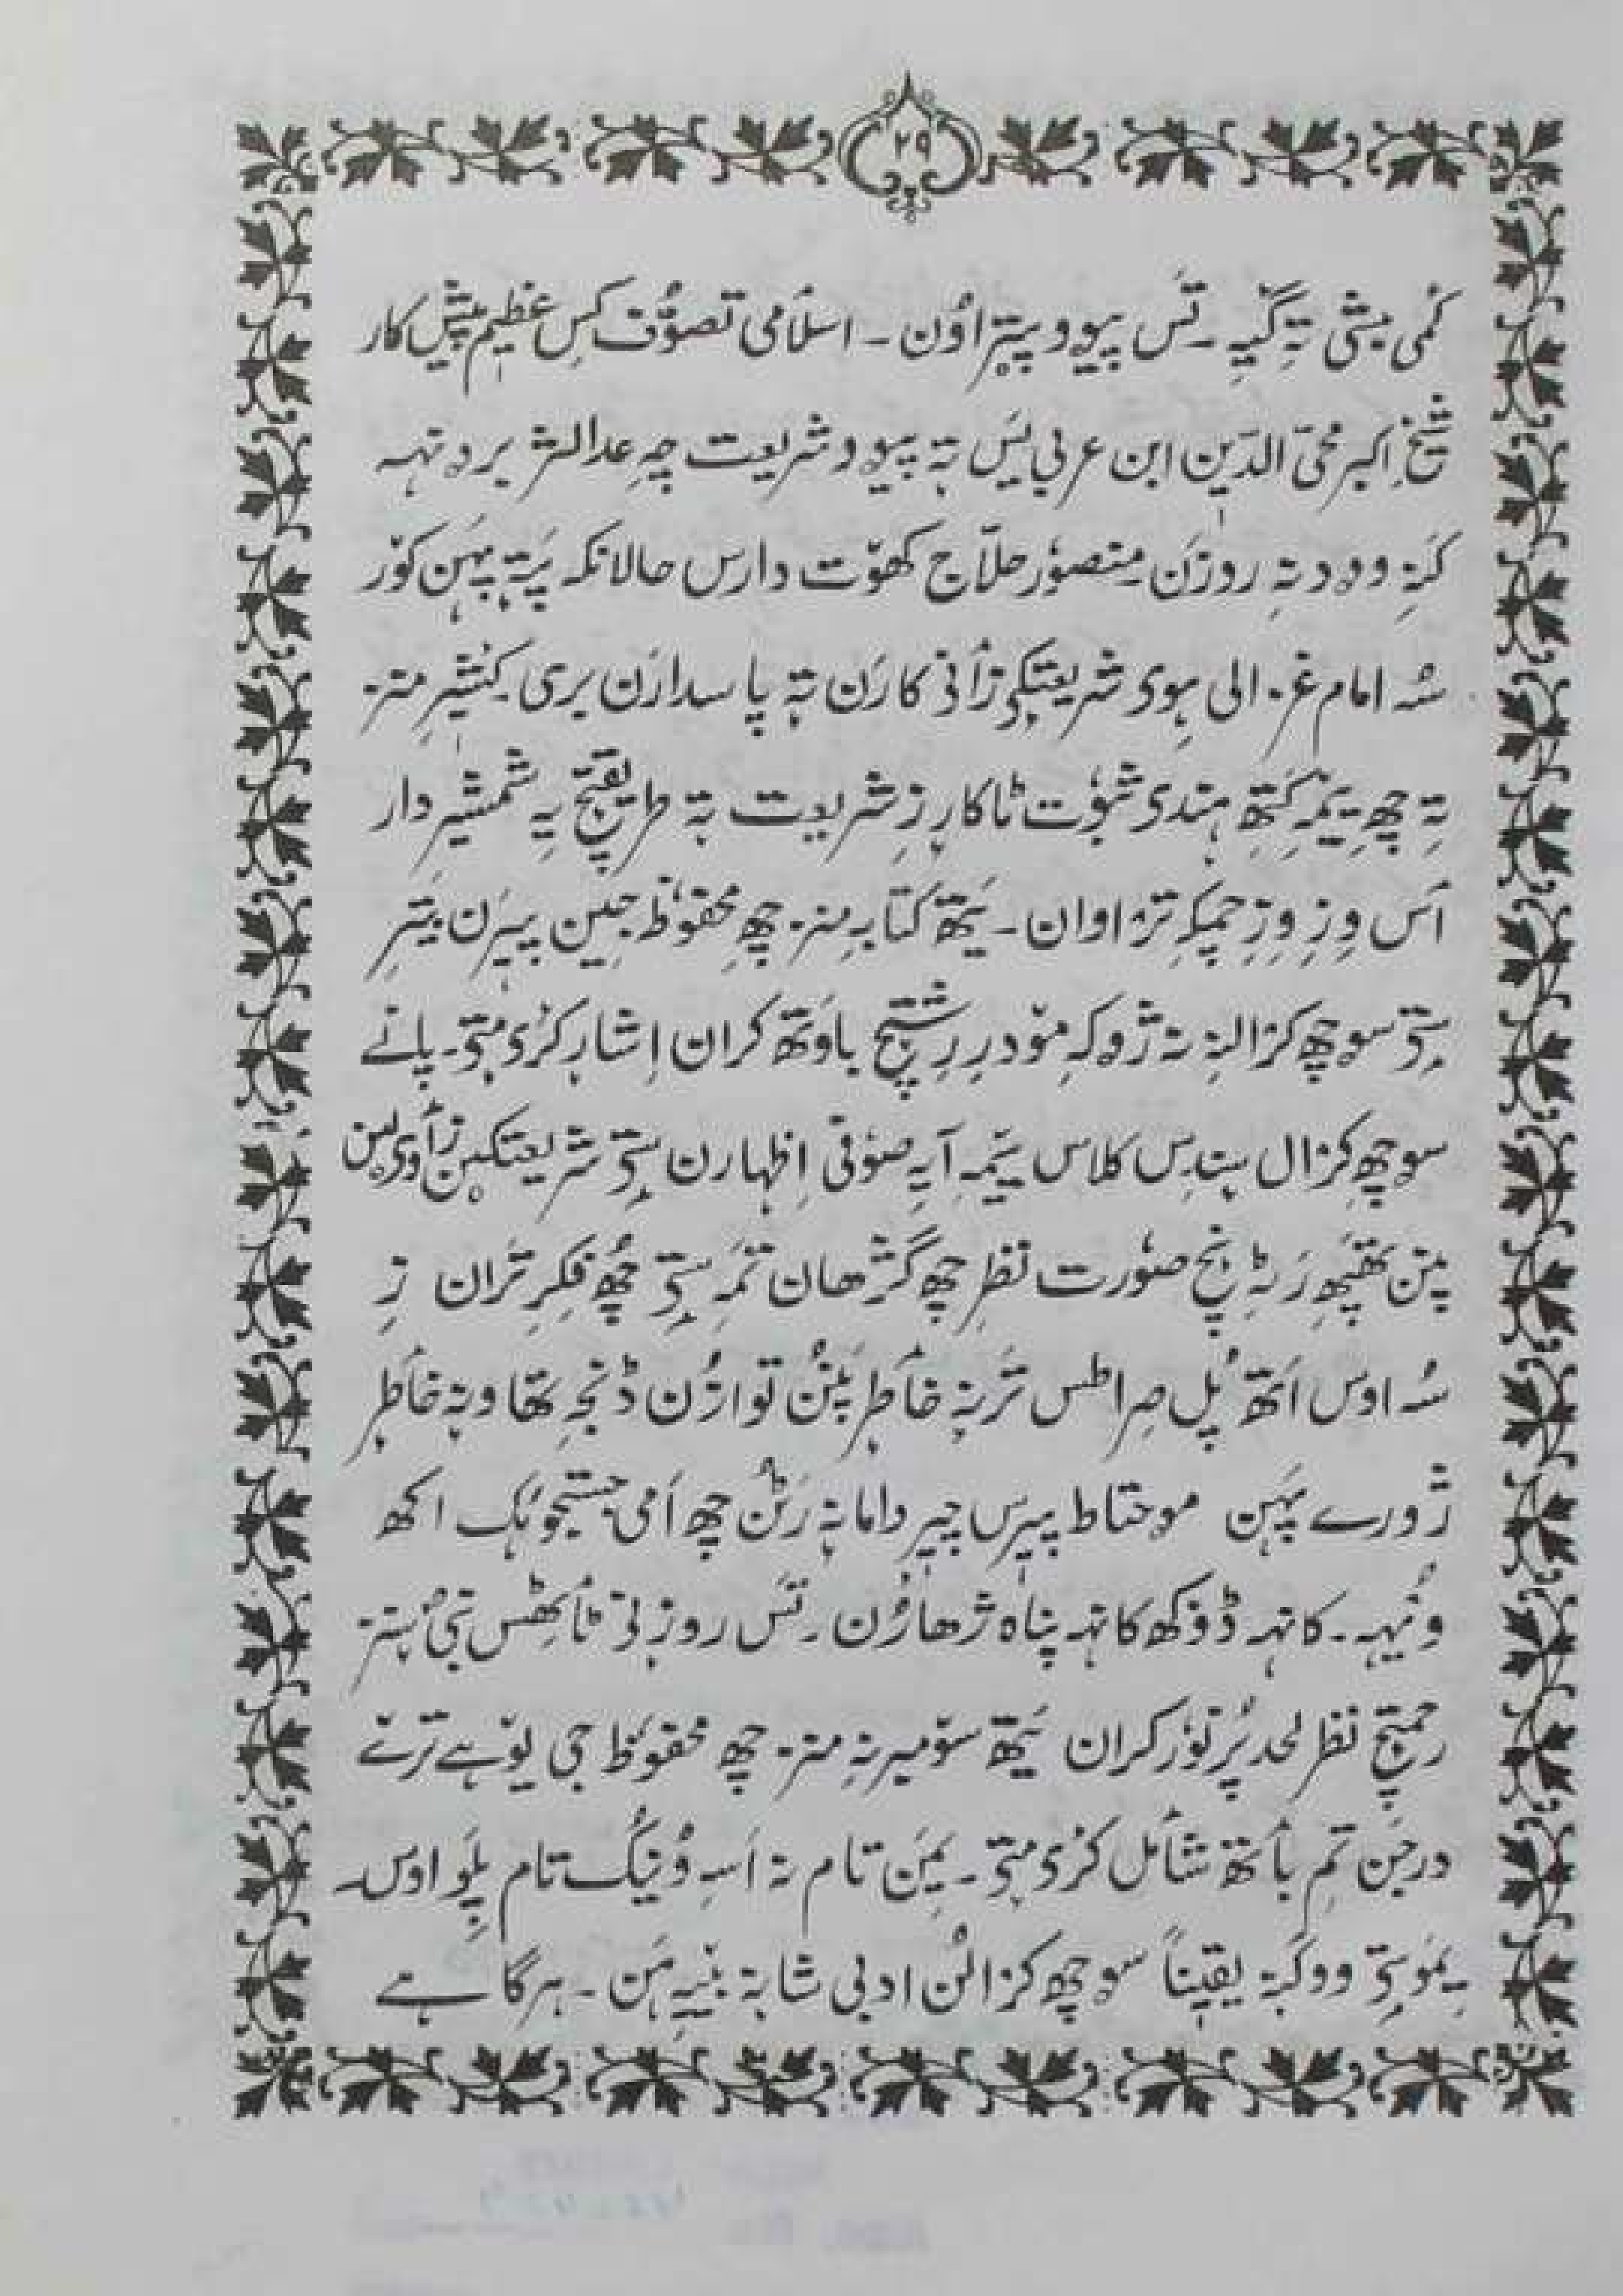 ۲۹
کٔمی بیشی تہٕ گیہِ ۔ تَس پیوو پتھراوُن ۔ اسلٲمی تصوُّف کِس عظیم پیش کار
شیخِ اکبر محی الدّین ابن عربی یَس تہٕ پیوو شریعت چہِ عدالژ برونہہ
کَنہِ وودنہِ روزَن منصوٗر حلّاج کھوٚت دارس حالانکہ پَتہٕ پہَن کوٚر
سُہ امام غزالی ہِوی شریعتکی زٲنی کارَن تہٕ پاسدارَن بری کٔشیرِ منز
تہِ چھِ یَمہِ کَتھِ ہندی ثبوٗت ٹاکارٕ زِ شریعت تہٕ طریقٕچ یہِ شمشیرِ دار
أس وِزِ وِزِ چمکہِ ترٛاوان ۔ یَتھ کتابہِ منز چھِ محفوٗظ جین پیرَن پیترِ
سٟتی سوچھ کرٛالنہِ تہٕ ژوکہِ موٚدرِ رِشتٕچ باوَتھ کران اِشارٕ کرٛی مٕتی ۔ پانے
سوچھ کرٛال سٕندِس کلاس یَتیمہِ آیہِ صوٗفی اِظہارن سٟتی شریعتکین زٲوی لین
پنَن تھپھِ رَٹنٕچ صوٗرت نظرِ چھ گژھان تَمہِ سٟتی چھُ فِکرِ ترَان زِ
سُہ اوس أتھ پُل صِراطس ترَنہٕ خٲطرٕ پَنُن توازُن ڈنجہِ تھاونہٕ خٲطرٕ
ژورے پہَن موحتاط پیرٕس چیرٕ دامانہٕ رَٹُن چھ أمی جستجوٗہُک اکھ
وُنیہہ ۔ کانہہ ڈوکھ کانہہ پناہ ژھارُن ۔ تَس روزٕ لی ٹٲٹھِس نبیؐ سٕنز
رحمتٕچ نظر لحد پُر نوٗر کران یَتھ سوٚمبرنہِ منز چھ محفوٗظ جی یوٚہے ترٛے
درجَن تٔم بٲتھ شٲمل کرٛی مٕتی ۔ یِمَن تام نہ أسہِ وُنیُک تام پِلَو اوس۔
یِمَو سٟتی ووکَنہٕ یقیناً سوچھ کرٛالُن ادبی شانہٕ بَنیہِ ہَن ۔ ہرگاہے